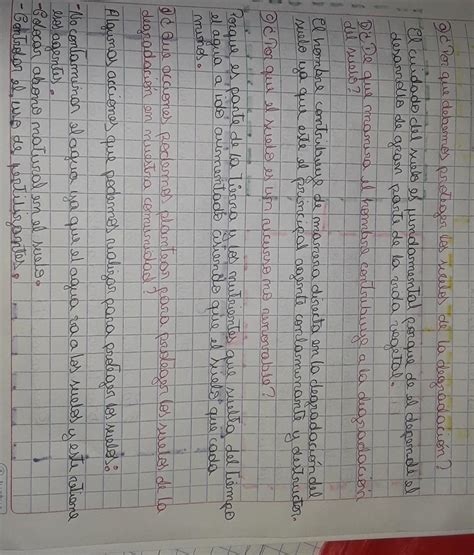 a)¿Por que debemos proteger los suelos de la degradación?
El cuidado del suelo es fundamental porque de el depende el
desarrollo de gran parte de la vida vegetal.
b)¿De que manera el hombre contribuye a la degradación
del suelo?
El hombre contribuye de manera directa en la degradación del
suelo ya que ese el principal agente contaminante y destructor.
c)¿Por que el suelo es un recurso no renovable?
Porque es parte de la tierra y los nutrientes que suelta del tiempo
el agua a ido aumentado asiendo que el suelo que cada
d)¿Que acciones podemos plantear para proteger los suelos de la
degradación en nuestra comunidad?
Algunas acciones que podemos realizar para proteger los suelos:
-No contaminar el agua ya que el agua va a los suelos y este retiene
los agentes.
-Colocar abono natural en el suelo.
-Controlar el uso de fertilizantes.